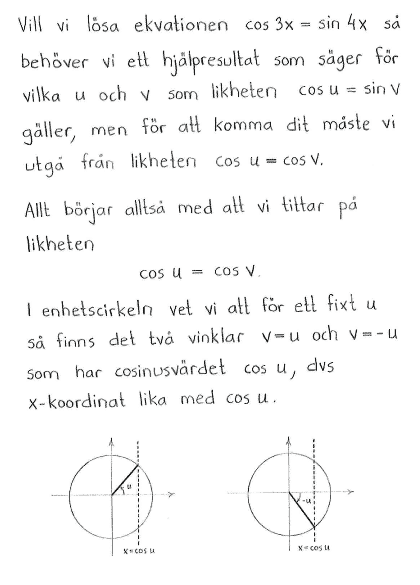 Vill vi lösa ekvationen cos 3x = sin 4x så
behöver vi ett hjälpresultat som säger för
vilka u och v som likheten cos u = sin v
gäller, men för att komma dit måste vi
utgå från likheten cos u = cos v.
Allt börjar alltså med att vi tittar på
likheten
cos u = cos v.
I enhetscirkeln vet vi att för ett fixt u
så finns det två vinklar v=u och v=-u
som har cosinusvärdet cos u, dvs
x-koordinat lika med cos u.
u
-u
x=cos u
x=cos u